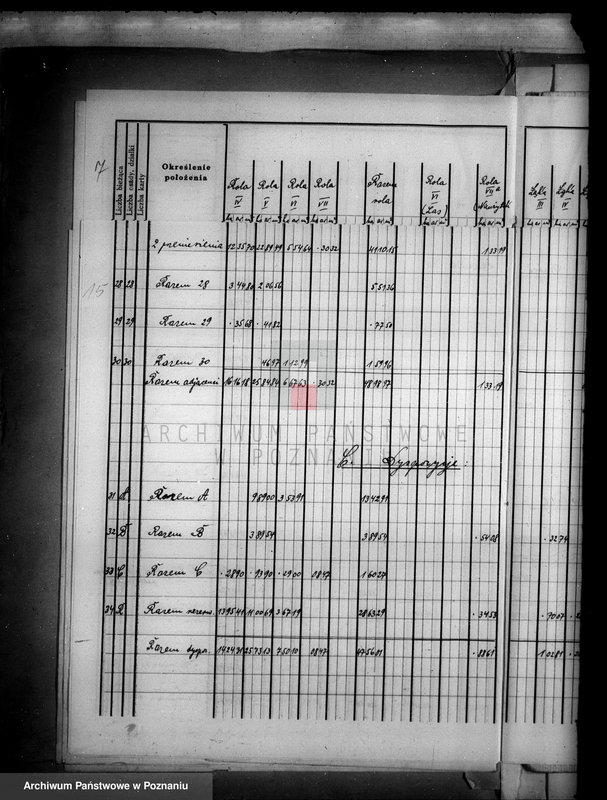 17
Liczba bieżąca
Liczba osady, działki
Liczba karty
Określenie położenia
Rola IV
Rola V
Rola VI
Rola VII
Razem rola
Rola VI (Las)
Rola VII a
Łąki III
Łąki IV
ha ar. m²
Z przeniesienia 123570 228949 55464 .3032 411015 13319
15
28 28 Razem 28 34480 20656 55136
29 29 Razem 29 .3568 .4182 .7750
30 30 Razem 30 4697 11299 15996
Razem 161618 258484 66763 .3032 489897 13319
ARCHIWUM PAŃSTWOWE
W POZNANIU
C. Dyspozycje:
31 A Razem A 98900 35391 134291
32 B Razem B 38954 38954 .5408 .3274
33 C Razem C .2890 .9390 .2900 0847 16027
34 R Razem 139541 110069 36719 286329 .3453 .7007
Razem dysp. 142431 257313 75010 0847 475601 .8861 10281
Archiwum Państwowe w Poznaniu